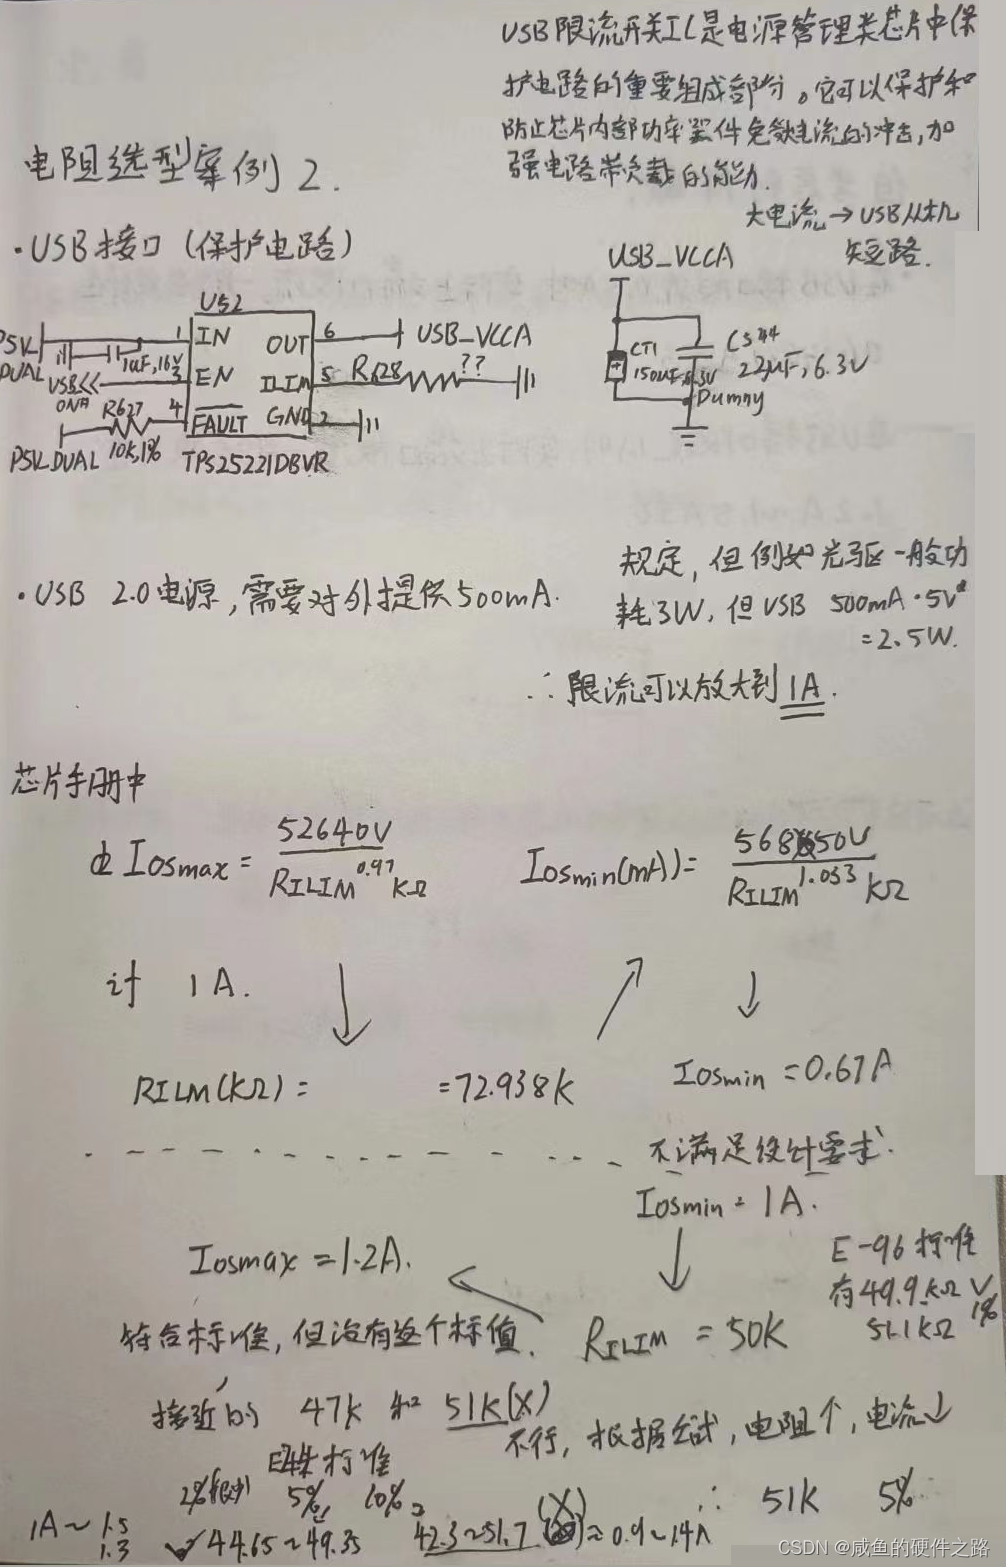 USB限流开关IC是电源管理类芯片中保
护电路的重要组成部分。它可以保护和
防止芯片内部功率器件免繁电流的冲击,加
强电路带负载的能力.
大电流→USB从机
短路.
电阻选型案例2.
·USB接口(保护电路)
USB_VCCA
U52
P5V_DUAL
1uF,16V
1 IN
OUT 6
USB_VCCA
USB<<
3 EN
ILIM 5
R628
??
R627
4 FAULT
GND 2
P5V_DUAL
10K,1%
TPS25221DBVR
CT1
150uF,6.3V
C544
22uF,6.3V
Dummy
·USB 2.0电源,需要对外提供500mA.
规定,但例如光驱一般功
耗3W,但USB 500mA·5V
=2.5W.
∴限流可以放大到1A.
芯片手册中
由 Iosmax = 52640V / RILIM^0.97 kΩ
Iosmin(mA)= 50V / RILIM^1.033 kΩ
计 1A.
RILM(kΩ)= =72.938k
Iosmin =0.67A
不满足设计要求.
Iosmin = 1A.
Iosmax =1.2A.
E-96标准
有49.9kΩ √
1%
51.1kΩ
符合标准,但没有这个标值.
RILIM = 50K
接近的 47k 和 51k(X)
不行,根据公式,电阻个,电流↓
标准
2% 5%, 10%.
∴ 51k 5%
1A~1.5
1.3
✓44.65~49.35
42.3~51.7 (X) ≈0.9~1.4A
CSDN @咸鱼的硬件之路